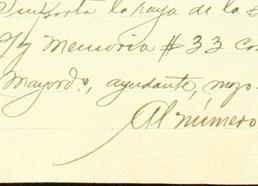 Importa la raya de la
Memoria # 33 Co
Mayord.º, ayudante, mozo
Al número